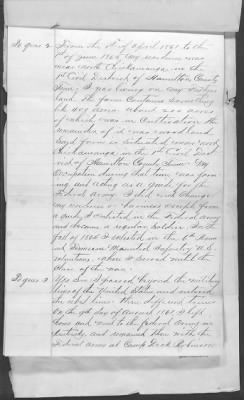 To ques 2 From the 1st of April 1861 to the
1st of June 1865 My residence was
near north Chickamauga in the
1st Civil District of Hamilton County
Tenn. I was living on my Fathers
land the farm contains something
like 200 acres about 100 acres
of which was in Cultivation the
remainder of it was woodland
Said farm is situated near north
Chickamauga in the 1st Civil Dis-
trict of Hamilton County Tenn. My
Occupation during that time was farm
ing and acting as a guide for the
Federal Army I did not change
my residence or business except from
a guide I enlisted in the Federal Army
and became a regular Soldier. In the
fall of 1864 I enlisted in the 6th Reg
ment Tennessee Mounted Infantry U.S.
volunteers where I served until the
close of the war.
To ques 3 Yes Sir I passed beyond the military
lines of the United States and entered
the rebel lines. Three different times
On the 9th day of August 1861 I left
home and went to the federal Army in
Kentucky and remained there with the
Federal Army at Camp Dick Robinson